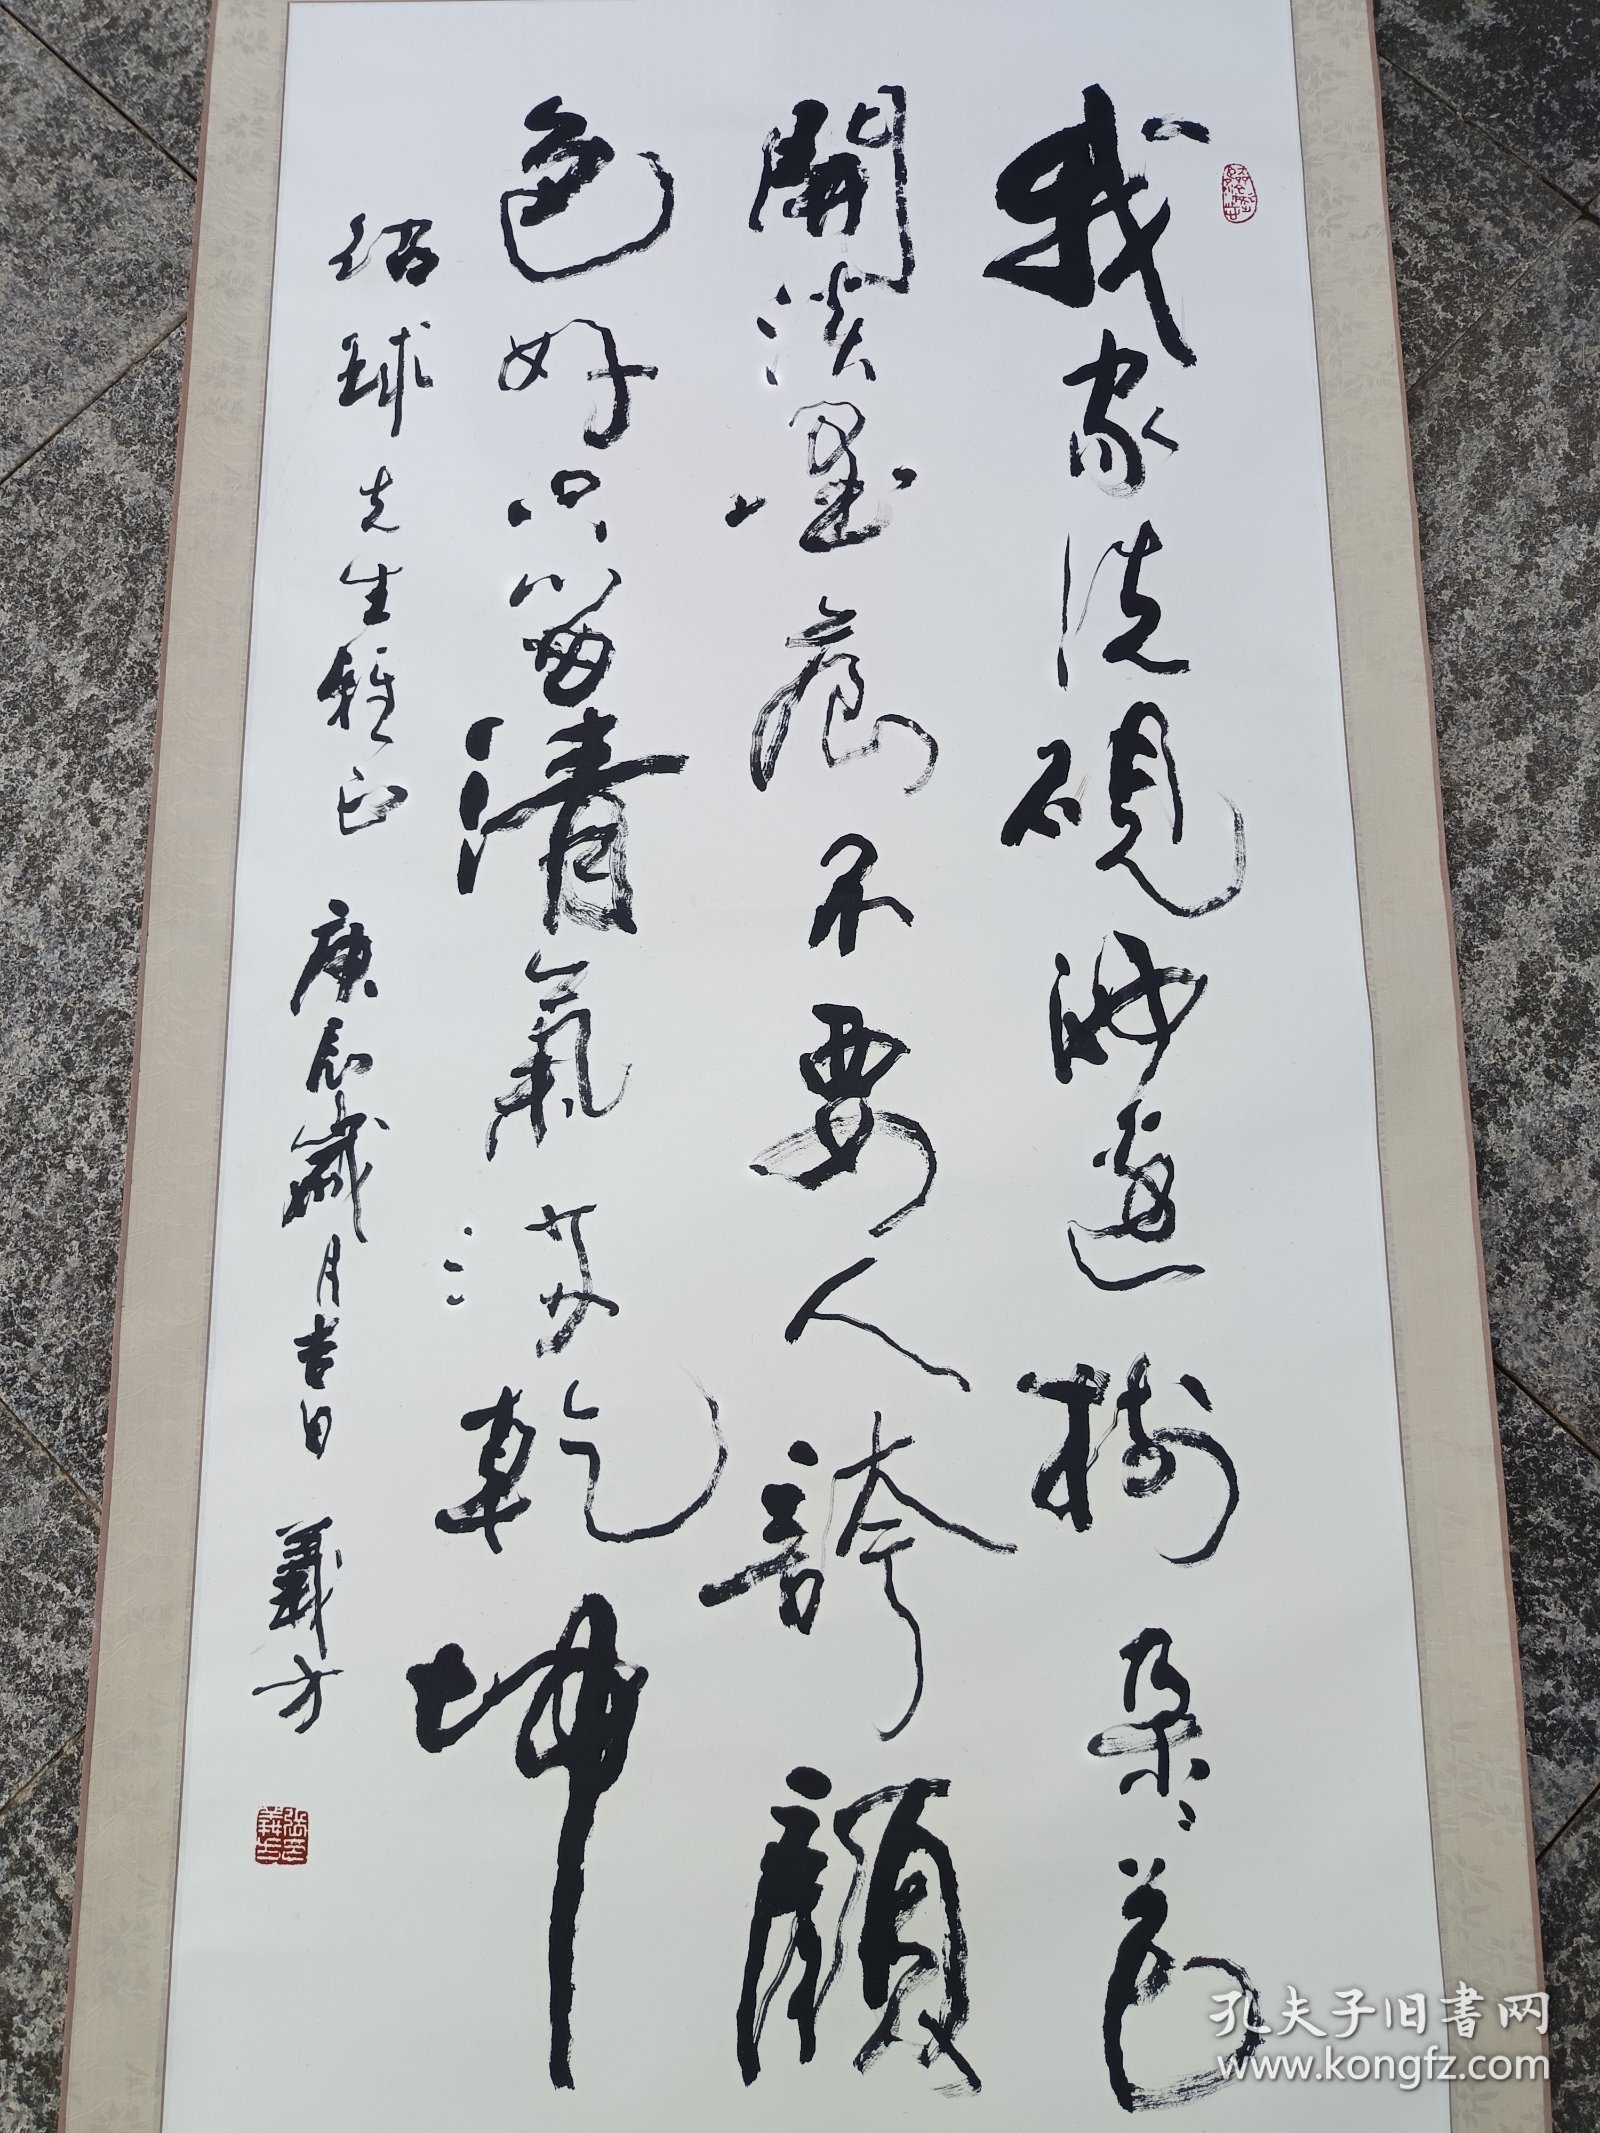 我家洗硯池邊樹朵朵花
開淡墨痕不要人誇顏
色好只留清氣滿乾坤
紹球先生雅正 庚辰歲月吉日 義方
孔夫子旧书网
www.kongfz.com